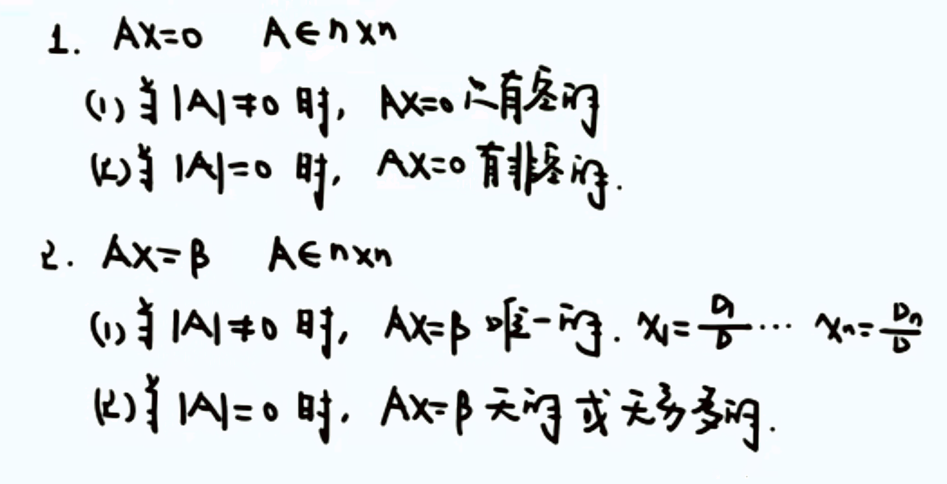 1. AX=0 A∈n×n
(1) 当 |A|≠0 时, AX=0 只有零解
(2) 当 |A|=0 时, AX=0 有非零解.
2. AX=β A∈n×n
(1) 当 |A|≠0 时, AX=β 唯一解. x₁=D₁/D ⋯ xₙ=Dₙ/D
(2) 当 |A|=0 时, AX=β 无解 或 无穷多解.